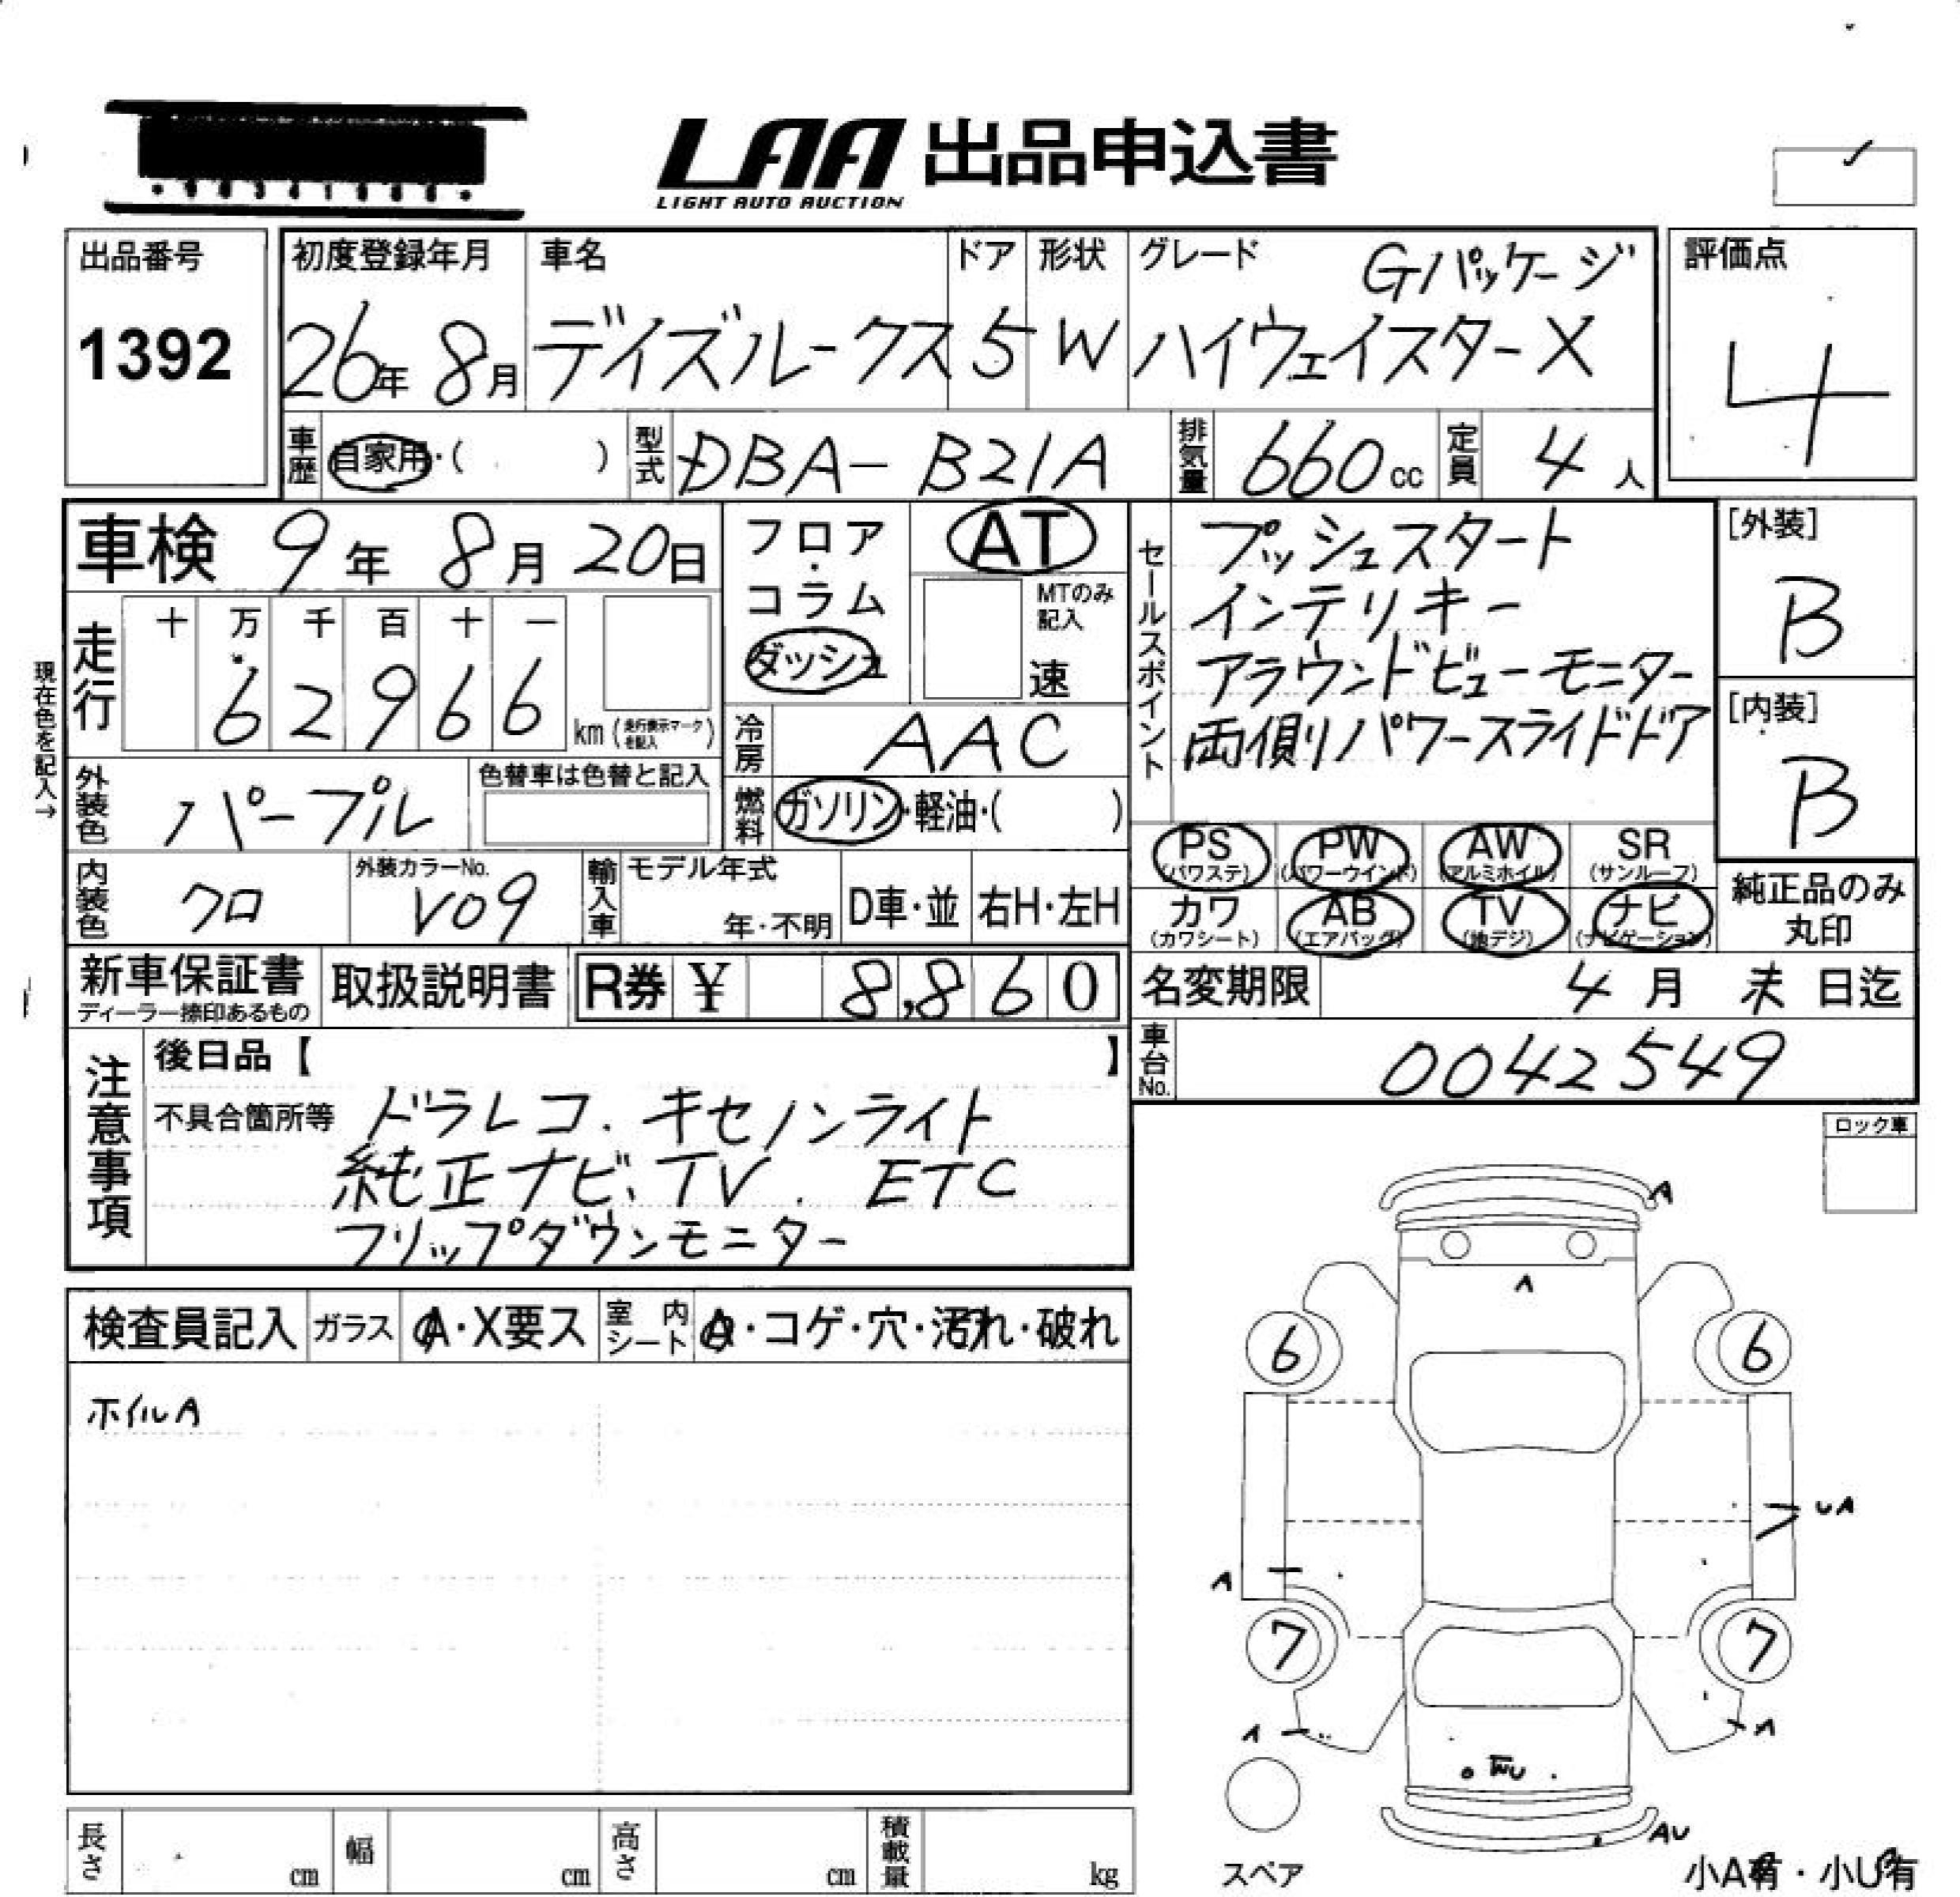 LAA 出品申込書
LIGHT AUTO AUCTION
出品番号
1392
初度登録年月
26年 8月
車名
デイズルークス
ドア
5
形状
W
グレード
Gパッケージ
ハイウェイスターX
評価点
4
車歴 自家用・( )
型式 DBA-B21A
排気量 660cc
定員 4人
車検 9年 8月 20日
現在色を記入→
走行
十 万 千 百 十 一
6 2 9 6 6
km(走行表示マークを記入)
フロア・コラム
ダッシュ
AT
MTのみ記入
速
冷房 AAC
燃料 ガソリン・軽油・( )
セールスポイント
プッシュスタート
インテリキー
アラウンドビューモニター
両側パワースライドドア
[外装]
B
[内装]
B
外装色 パープル
色替車は色替と記入
内装色 クロ
外装カラーNo.
V09
輸入車
モデル年式
年・不明
D車・並
右H・左H
PS
(パワステ)
PW
(パワーウインド)
AW
(アルミホイル)
SR
(サンルーフ)
カワ
(カワシート)
AB
(エアバッグ)
TV
(地デジ)
ナビ
(ナビゲーション)
純正品のみ
丸印
新車保証書
ディーラー捺印あるもの
取扱説明書
R券 ¥ 8,860
名変期限 4月 末日迄
車台No. 0042549
注意事項
後日品【 】
不具合箇所等 ドラレコ.キセノンライト
純正ナビ、TV. ETC
フリップダウンモニター
ロック車
検査員記入
ガラス
A・X要ス
室内シート
A・コゲ・穴・汚れ・破れ
ホイルA
A
A
6
6
UA
A
7
7
A
A
WU
AU
スペア
小A有・小U有
長さ cm
幅 cm
高さ cm
積載量 kg